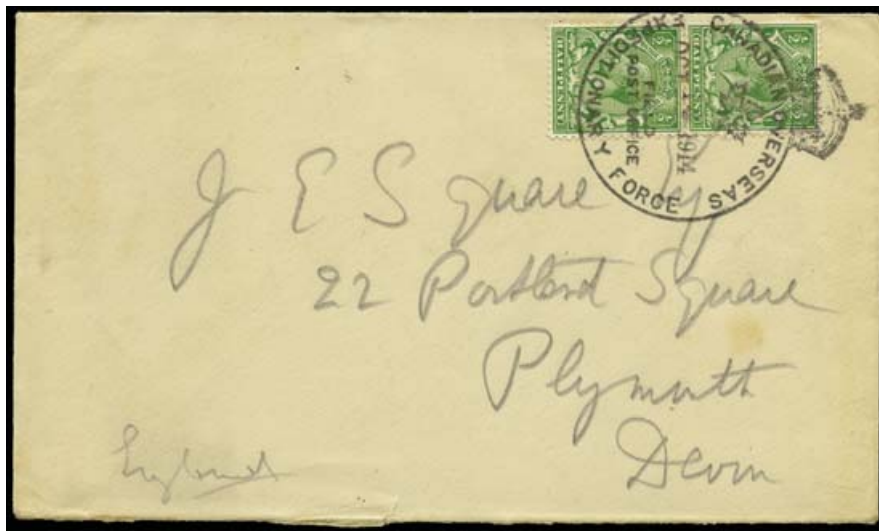 CANADIAN OVERSEAS EXPEDITIONARY FORCE
FIELD
POST OFFICE
1914
HALFPENNY
HALFPENNY
J E Square Esq
22 Portland Square
Plymouth
Devon
England